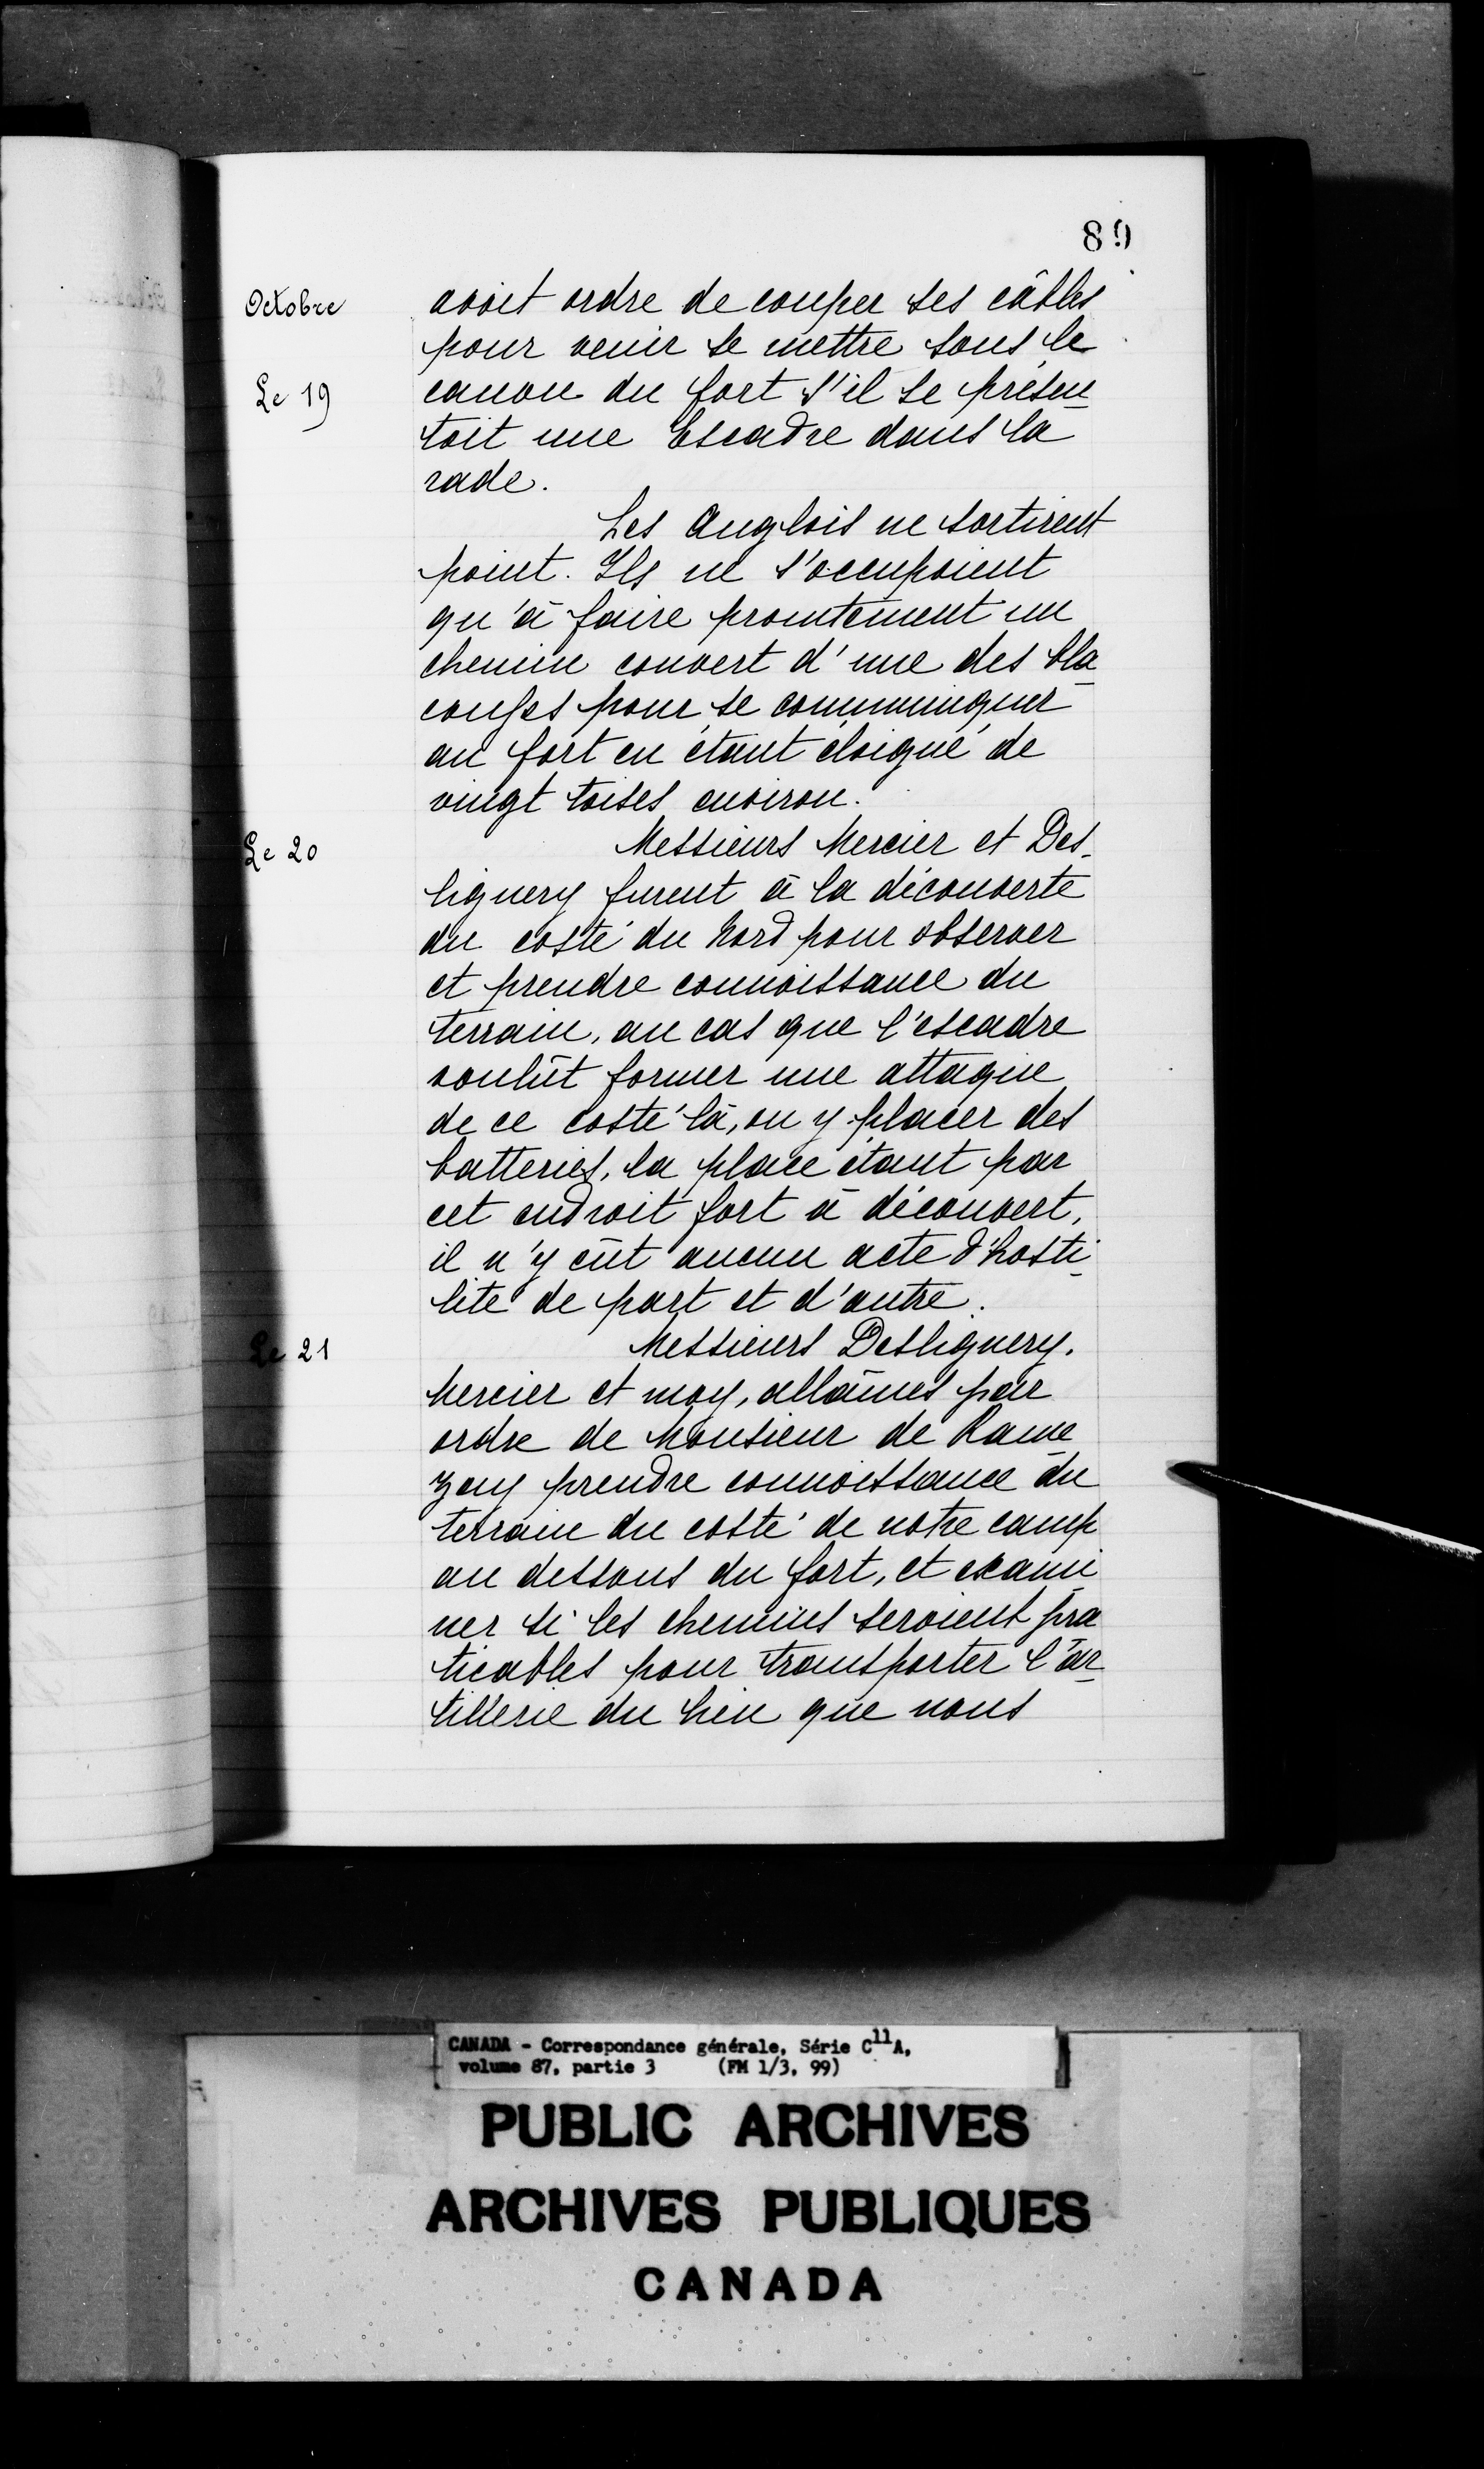 89
Octobre
avoit ordre de couper ses câbles
pour venir se mettre sous le
Le 19
canon du fort s'il se présen
toit une Escadre dans la
rade.
Les Anglois ne sortirent
point. Ils ne s'occupoient
qu'à faire promtement un
chemin couvert d'une des bla
couses pour se communiquer
au fort en étant éloigné de
vingt toises environ.
Le 20
Messieurs Mercier et Des-
lignery furent à la découverte
du costé du Nord pour observer
et prendre connoissance du
terrain, au cas que l'escadre
voulût former une attaque
de ce costé là, ou y placer des
batteries, la place étant par
cet endroit fort à découvert,
il n'y eût aucun acte d'hosti
lité de part et d'autre.
Le 21
Messieurs Deslignery,
Mercier et moy, allâmes par
ordre de Monsieur de Rame
zay prendre connoissance du
terrain du costé de notre camp
au dessous du fort, et exami
ner si les chemins seroient pra
ticables pour transporter l'ar
tillerie du lieu que nous
CANADA - Correspondance générale, Série C11A,
volume 87, partie 3 (FM 1/3, 99)
PUBLIC ARCHIVES
ARCHIVES PUBLIQUES
CANADA